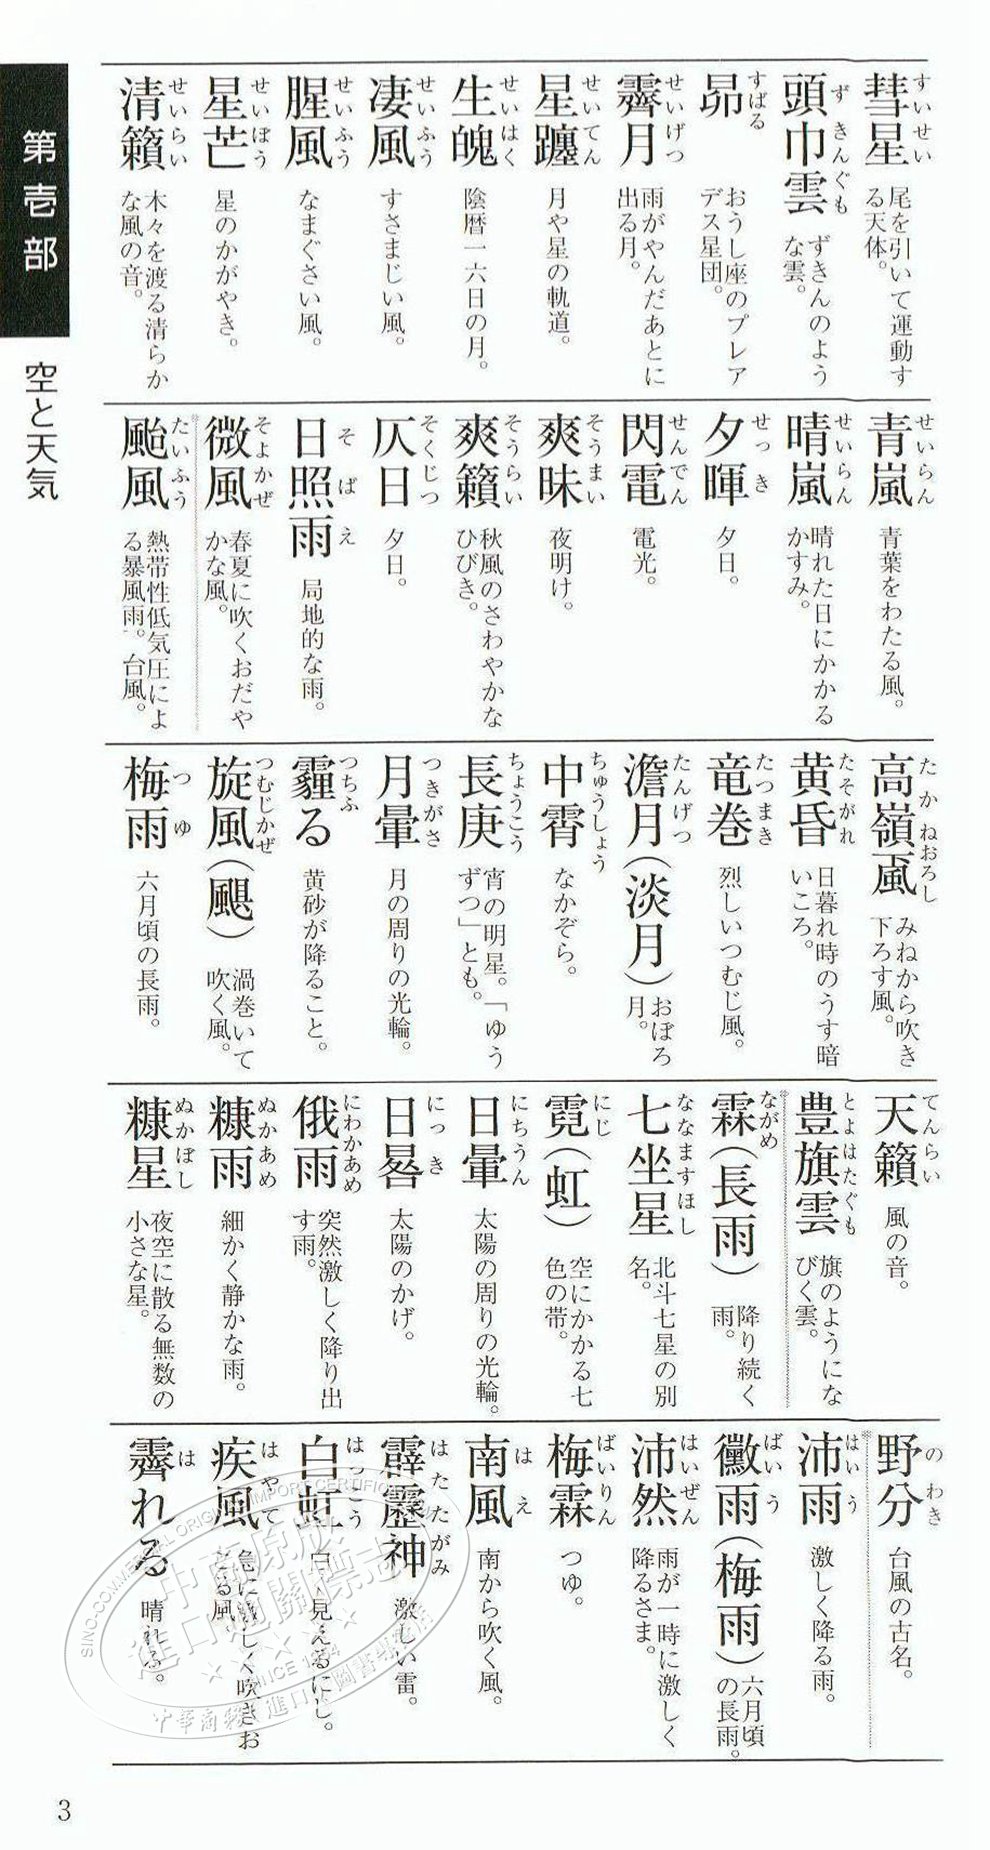 第壱部
空と天気
彗星 すいせい 尾を引いて運動する天体。
頭巾雲 ずきんぐも ずきんのような雲。
昴 すばる おうし座のプレアデス星団。
霽月 せいげつ 雨がやんだあとに出る月。
星躔 せいてん 月や星の軌道。
生魄 せいはく 陰暦一六日の月。
凄風 せいふう すさまじい風。
腥風 せいふう なまぐさい風。
星芒 せいぼう 星のかがやき。
清籟 せいらい 木々を渡る清らかな風の音。
青嵐 せいらん 青葉をわたる風。
晴嵐 せいらん 晴れた日にかかるかすみ。
夕暉 せっき 夕日。
閃電 せんでん 電光。
爽昧 そうまい 夜明け。
爽籟 そうらい 秋風のさわやかなひびき。
仄日 そくじつ 夕日。
日照雨 そばえ 局地的な雨。
微風 そよかぜ 春夏に吹くおだやかな風。
颱風 たいふう 熱帯性低気圧による暴風雨。台風。
高嶺颪 たかねおろし みねから吹き下ろす風。
黄昏 たそがれ 日暮れ時のうす暗いころ。
竜巻 たつまき 烈しいつむじ風。
澹月(淡月) たんげつ おぼろ月。
中霄 ちゅうしょう なかぞら。
長庚 ちょうこう 宵の明星。「ゆうずつ」とも。
月暈 つきがさ 月の周りの光輪。
霾る つちふ 黄砂が降ること。
旋風(颶) つむじかぜ 渦巻いて吹く風。
梅雨 つゆ 六月頃の長雨。
天籟 てんらい 風の音。
豊旗雲 とよはたぐも 旗のようになびく雲。
霖(長雨) ながめ 降り続く雨。
七坐星 ななますほし 北斗七星の別名。
霓(虹) にじ 空にかかる七色の帯。
日暈 にちうん 太陽の周りの光輪。
日晷 にっき 太陽のかげ。
俄雨 にわかあめ 突然激しく降り出す雨。
糠雨 ぬかあめ 細かく静かな雨。
糠星 ぬかぼし 夜空に散る無数の小さな星。
野分 のわき 台風の古名。
沛雨 はいう 激しく降る雨。
黴雨(梅雨) ばいう 六月頃の長雨。
沛然 はいぜん 雨が一時に激しく降るさま。
梅霖 ばいりん つゆ。
南風 はえ 南から吹く風。
霹靂神 はたたがみ 激しい雷。
白虹 はっこう 白く見えるにじ。
疾風 はやて 急に激しく吹きおこる風。
霽れる は 晴れる。
3
SINO-COMMERCIAL ORIGINAL IMPORT CERTIFICATION
中商原版
進口圖關標志
SINCE 1984